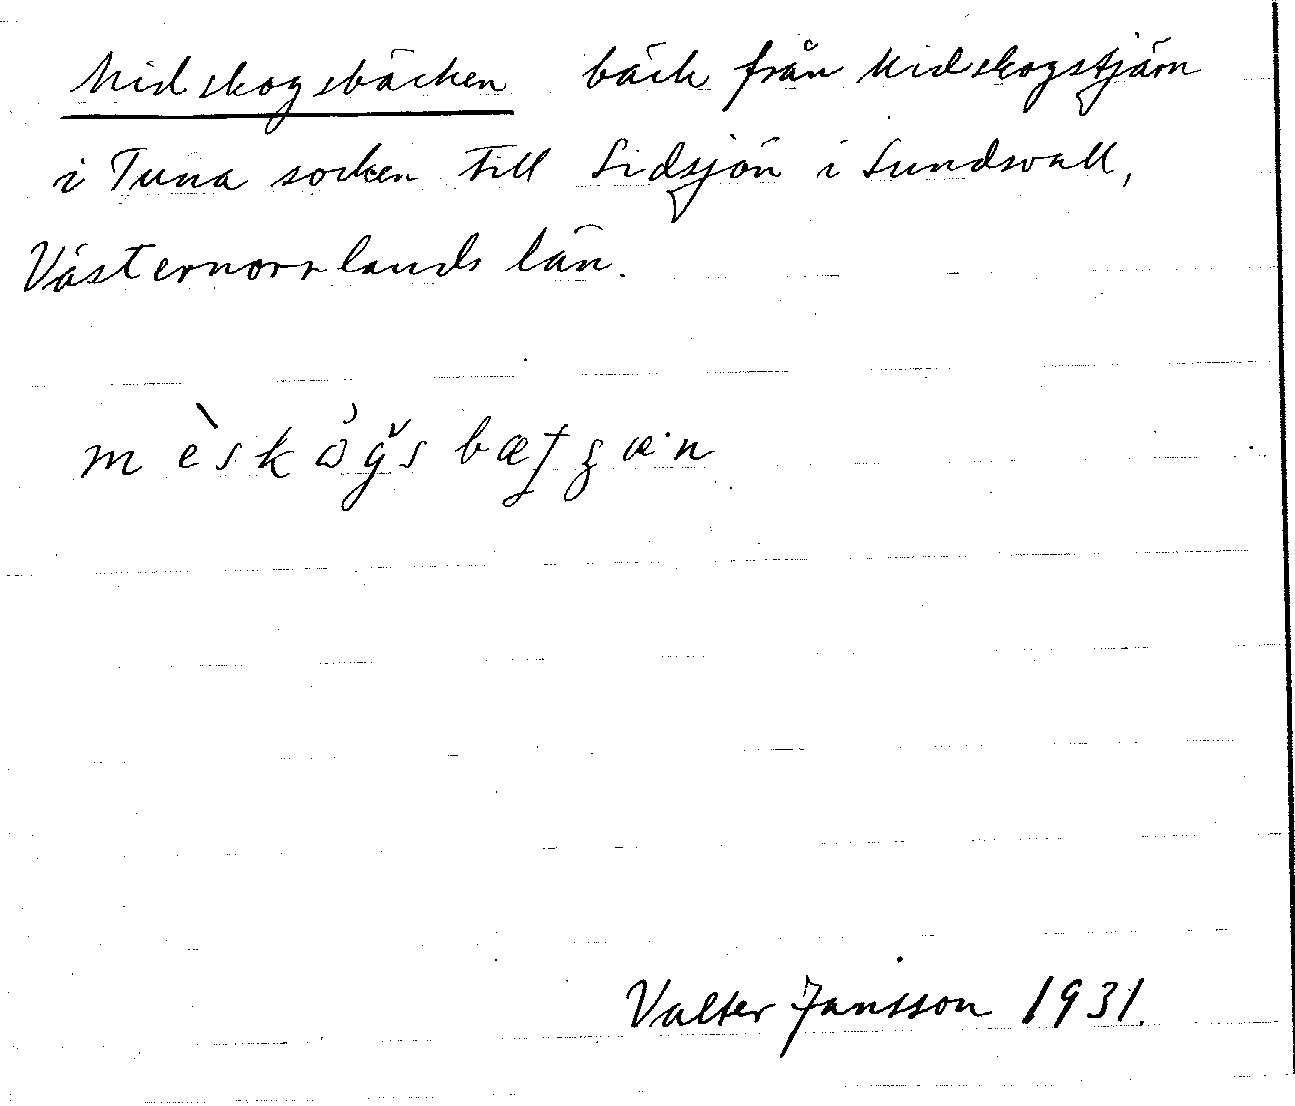 Midskogsbäcken bäck från Midskogstjärn
i Tuna socken till Sidsjön i Sundsvall,
Västernorrlands län.
mèskògs
Valter Jansson 1931.